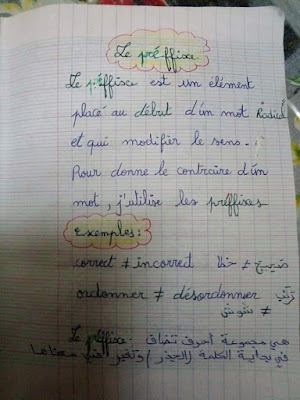 Le préffixe
Le préffixe est un élément
placé au début d'un mot Radical
et qui modifier le sens.
Pour donne le contraire d'un
mot, j'utilise les préffixes
Exemples:
correct ≠ incorrect خطأ ≠ صحيح
ordonner ≠ désordonner رتّب
≠ شوش
Le préffixe: هي مجموعة أحرف تضاف
في بداية الكلمة (الجذر) وتغير في معناها